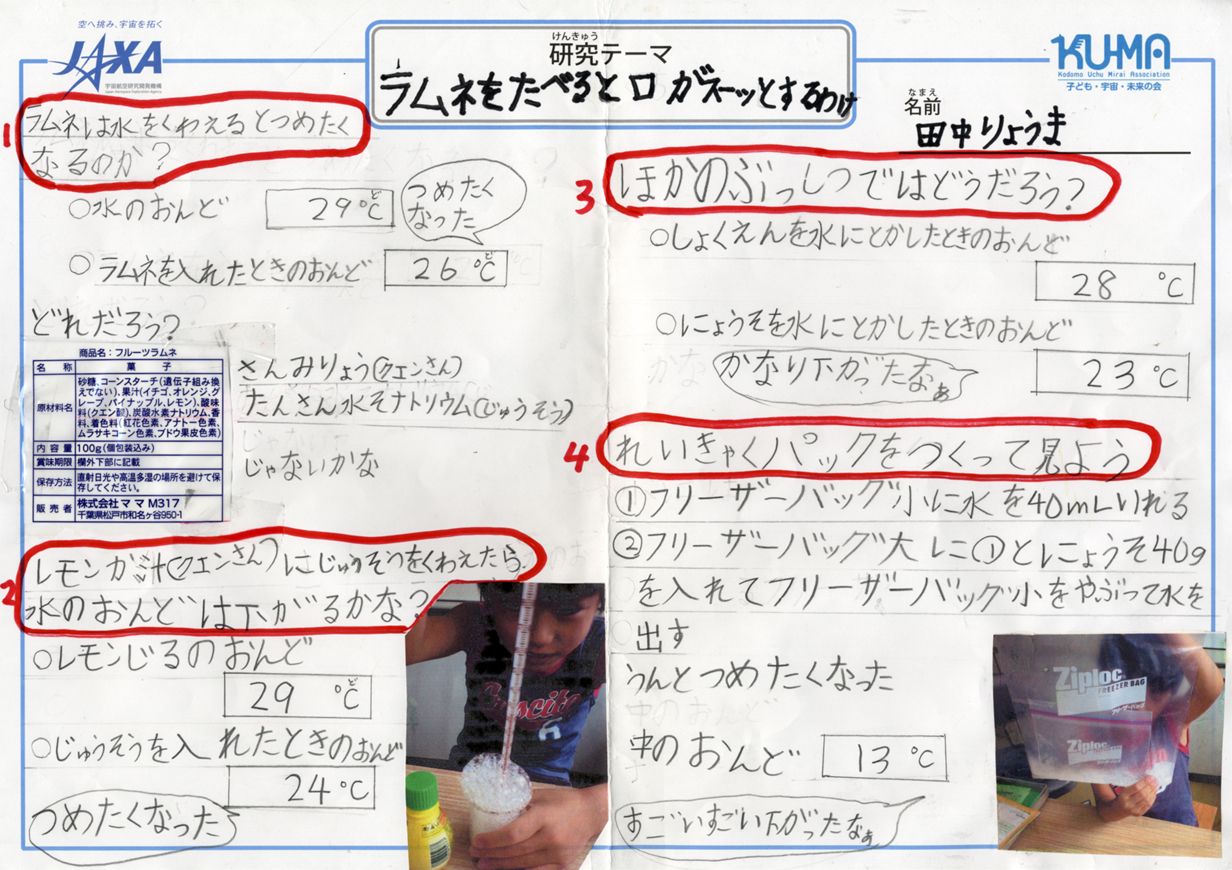 空へ挑み、宇宙を拓く
JAXA
宇宙航空研究開発機構
Japan Aerospace Exploration Agency
けんきゅう
研究テーマ
ラムネをたべると口がスーッとするわけ
KU-MA
Kodomo Uchu Mirai Association
子ども・宇宙・未来の会
なまえ
名前
田中りょうま
1
ラムネは水をくわえるとつめたく
なるのか?
○水のおんど
29℃
ど
つめたく
なった
○ラムネを入れたときのおんど
26℃
ど
どれだろう?
商品名:フルーツラムネ
名称 菓子
原材料名 砂糖、コーンスターチ(遺伝子組み換
えでない)、果汁(イチゴ、オレンジ、グ
レープ、パイナップル、レモン)、酸味
料(クエン酸)、炭酸水素ナトリウム、香
料、着色料(紅花色素、アナトー色素、
ムラサキコーン色素、ブドウ果皮色素)
内容量 100g(個包装込み)
賞味期限 欄外下部に記載
保存方法 直射日光や高温多湿の場所を避けて保
存してください。
販売者 株式会社 ママ M317
千葉県松戸市和名ヶ谷950-1
さんみりょう(クエンさん)
たんさん水そナトリウム(じゅうそう)
じゃないかな
2
レモンが汁(クエンさん)にじゅうそうをくわえたら
水のおんどは下がるかな?
○レモンじるのおんど
29℃
ど
○じゅうそうを入れたときのおんど
24℃
つめたくなった
3
ほかのぶっしつではどうだろう?
○しょくえんを水にとかしたときのおんど
28℃
○にょうそを水にとかしたときのおんど
かなり下がったなぁ
23℃
4
れいきゃくパックをつくって見よう
①フリーザーバッグ小に水を40mLいれる
②フリーザーバッグ大に①とにょうそ40g
を入れてフリーザーバッグ小をやぶって水を
出す
うんとつめたくなった
中のおんど
13℃
すごいすごい下がったなぁ
Ziploc
FREEZER BAG
フリーザーバッグ
Ziploc